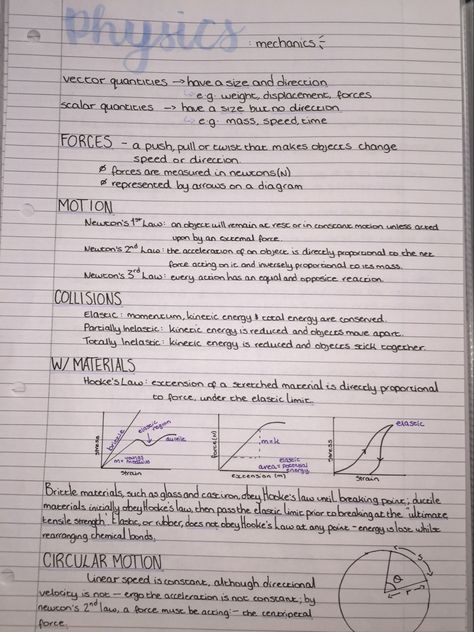 Physics : mechanics
vector quantities → have a size and direction
↳ e.g. weight, displacement, forces
scalar quantities → have a size but no direction
↳ e.g. mass, speed, time
FORCES - a push, pull or twist that makes objects change
speed or direction.
ø forces are measured in newtons (N)
ø represented by arrows on a diagram
MOTION
Newton's 1st Law: an object will remain at rest or in constant motion unless acted
upon by an external force.
Newton's 2nd Law: the acceleration of an object is directly proportional to the net
force acting on it and inversely proportional to its mass.
Newton's 3rd Law: every action has an equal and opposite reaction.
COLLISIONS
Elastic: momentum, kinetic energy & total energy are conserved.
Partially Inelastic: kinetic energy is reduced and objects move apart.
Totally Inelastic: kinetic energy is reduced and objects stick together.
W/ MATERIALS
Hooke's Law: extension of a stretched material is directly proportional
to force, under the elastic limit.
stress
brittle
elastic region
ductile
m = youngs modulus
strain
force (N)
m=k
elastic
area = potential
energy
extension (m)
stress
elastic
strain
Brittle materials, such as glass and cast iron, obey Hooke's law until breaking point; ductile
materials initially obey Hooke's law, then pass the elastic limit prior to breaking at the "ultimate
tensile strength". Elastic, or rubber, does not obey Hooke's Law at any point - energy is lost whilst
rearranging chemical bonds.
CIRCULAR MOTION
Linear speed is constant, although directional
velocity is not - ergo the acceleration is not constant; by
newton's 2nd law, a force must be acting - the centripetal
force.
r
s
θ
r